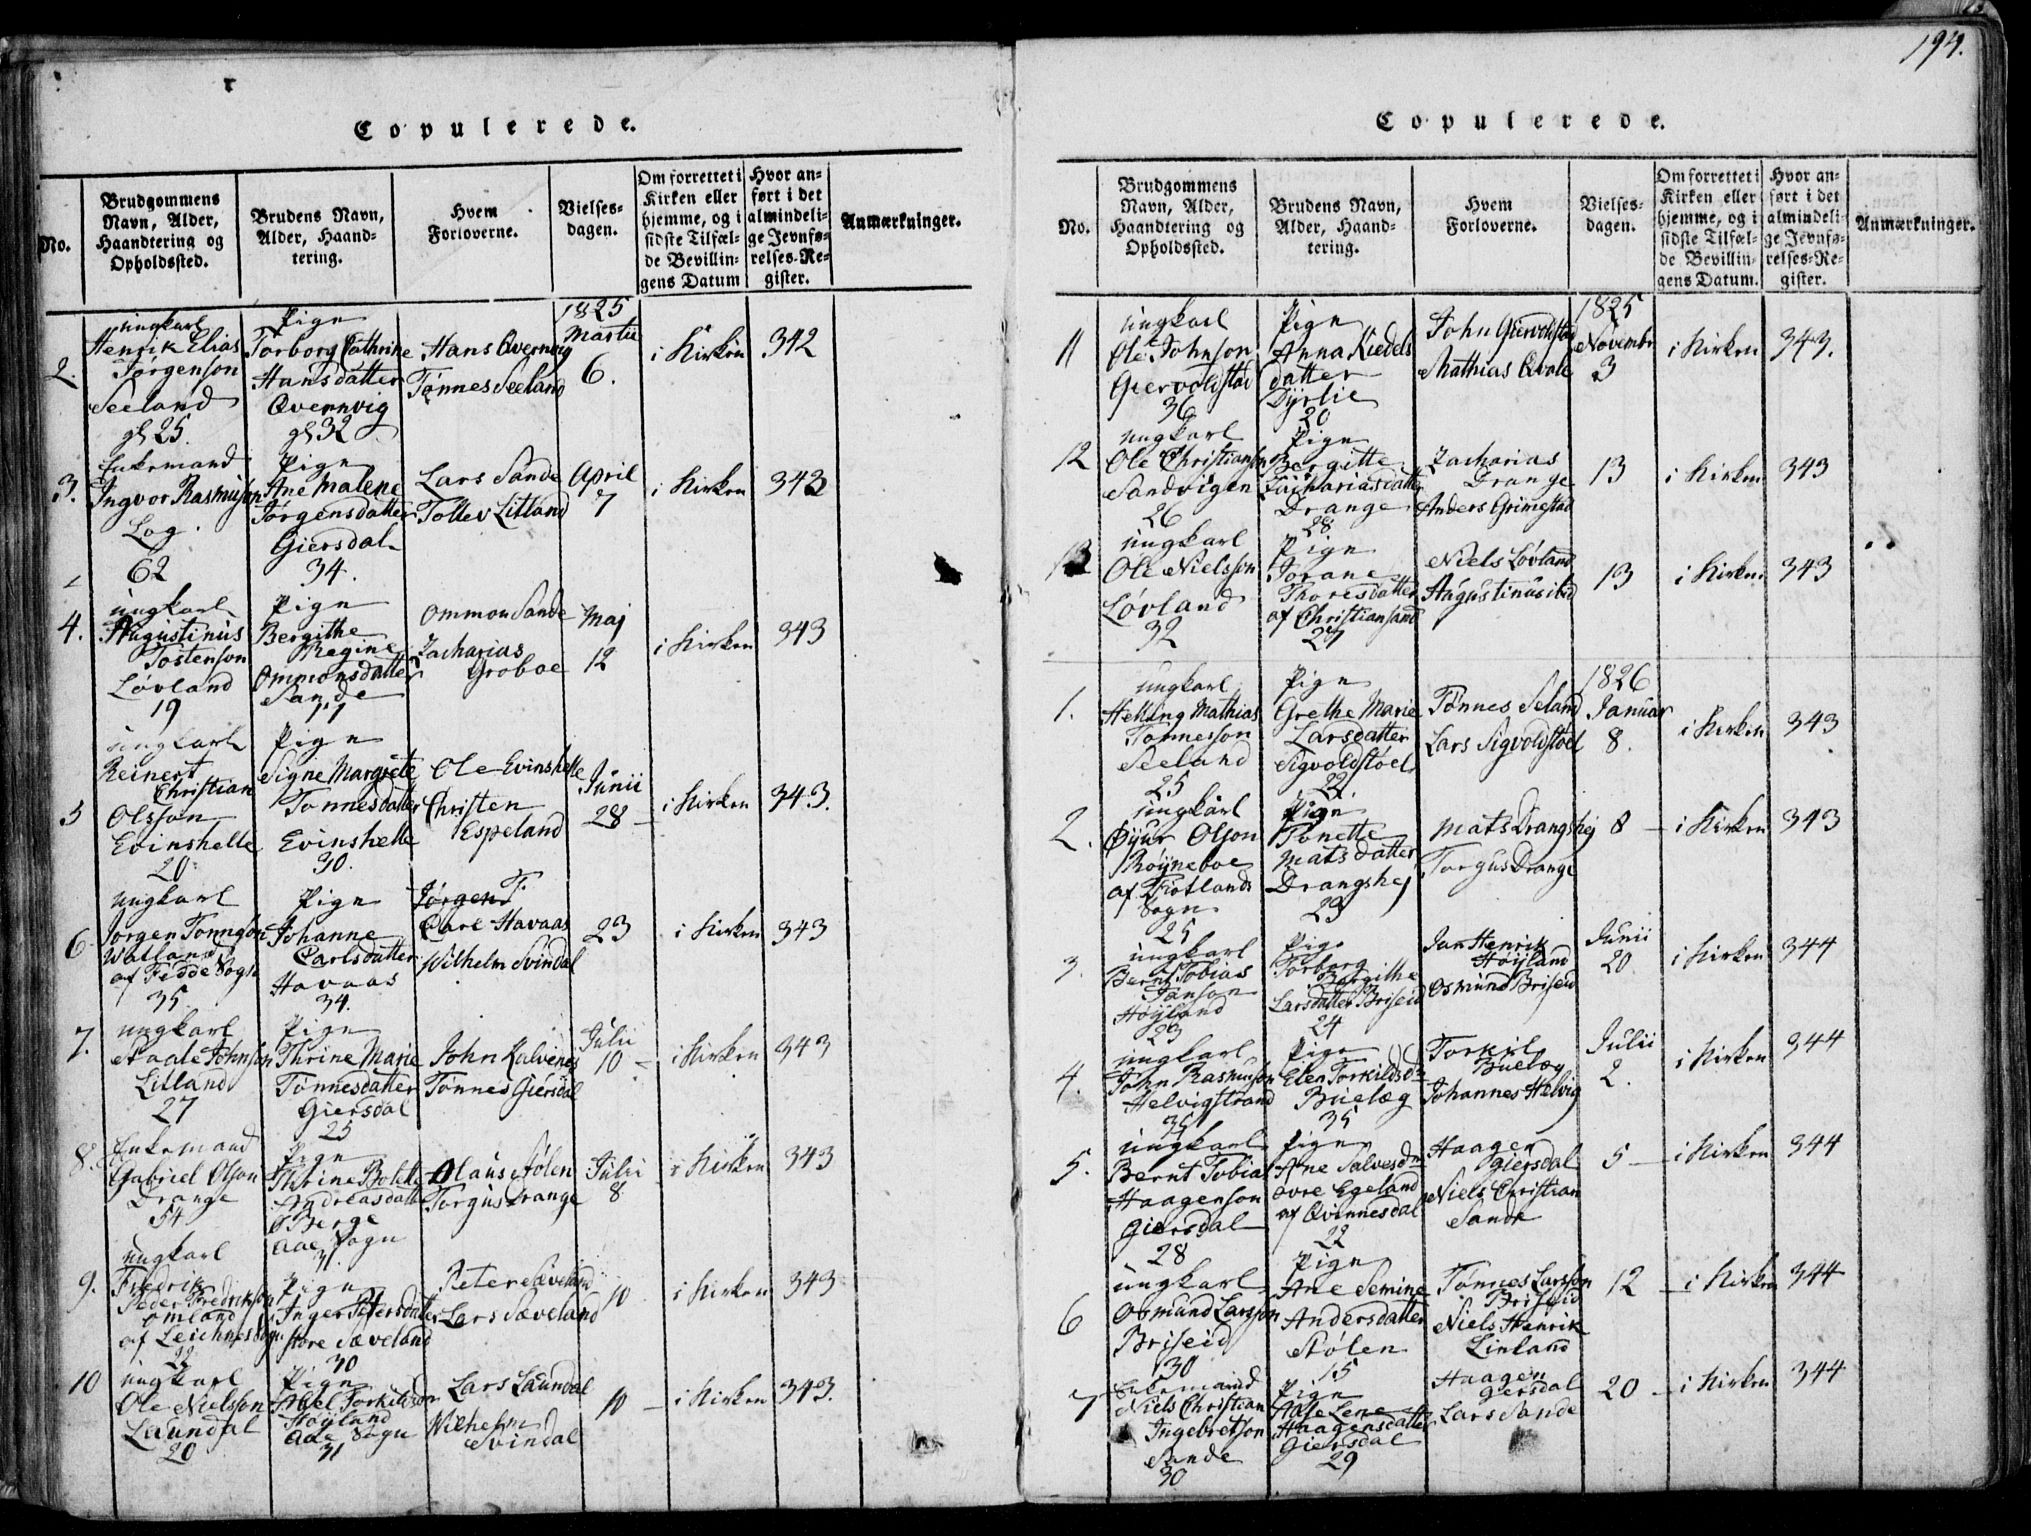 194.
Copulerede.
No.
Brudgommens Navn, Alder, Haandtering og Opholdssted.
Brudens Navn, Alder, Haandtering.
Hvem Forloverne.
Vielsesdagen.
Om forrettet i Kirken eller hjemme, og i sidste Tilfælde Bevillingens Datum
Hvor anført i det almindelige Jevnførelses-Register.
Anmærkninger.
1825
2. ungkarl Henrik Elias Jørgenson Seeland gl 25.
Pige Torborg Cathrine Hansdatter Qvernvig gl 32
Hans Qvernvig
Tønnes Seeland
Martii 6.
i Kirken 342
3. Enkemand Ingvor Rasmuson Log 62
Pige Ane Malene Jørgensdatter Giersdal 34.
Lars Sande
Tollev Litland
April 7
i Kirken 343
4. ungkarl Augustinus Tostenson Løvland 19
Pige Bergithe Regine Ommonsdatter Sande
Ommon Sande
Zacharias Groboe
Maj 12
i Kirken 343
5 ungkarl Reinert Christian Olsson Evinshelle 20
Pige Signe Margrete Tonnesdatter Evinshelle 30.
Ole Evinshelle
Christen Espeland
Junii 28
i Kirken 343.
6 ungkarl Jorgen Tonnson Watland af Fedde Sogn 35
Pige Johanne Carlsdatter Havaas 34.
Jørgen T.
Carl Havaas
Wilhelm Svindal
23
i Kirken 343
7. ungkarl Aaale Johnson Litland 27
Pige Thrine Marie Tønnesdatter Giersdal 25
John Kalvenes
Tønnes Giersdal
Julii 10
i Kirken 343
8. Enkemand Gabriel Olson Drange 54
Pige Thrine Bolette Andreasdatter Berge Aae Sogn 31
Olaus Stölen
Torgus Drange
Julii 8
i Kirken 343
9. ungkarl Fredrik Peder Fredrikson Omland af Leichnes Sogn 22
Pige Inger Petersdatter store Sæveland 30
Peter Sæveland
Lars Sæveland
10
i Kirken 343
10 ungkarl Ole Nielsson Laundal 20
Pige Abel Torkildsdr Høyland Aae Sogn 31
Lars Laundal
Wilhelm Svindal
10
i Kirken 343.
Copulerede.
No.
Brudgommens Navn, Alder, Haandtering og Opholdssted.
Brudens Navn, Alder, Haandtering.
Hvem Forloverne.
Vielsesdagen.
Om forrettet i Kirken eller hjemme, og i sidste Tilfælde Bevillingens Datum.
Hvor anført i det almindelige Jevnførelses-Register.
Anmærkninger.
1825
11 ungkarl Ole Johnson Giervoldstad 36
Pige Anna Kiedelsdatter Dyrlie 20
John Giervoldstad
Mathias Qvale
Novembr 3
i Kirken 343.
12 ungkarl Ole Christianson Sandvigen 26
Pige Bergitte Zachariasdatter Drange 28
Zacharias Drange
Anders Grimestad
13
i Kirken 343
13 ungkarl Ole Nielsson Løvland 32
Pige Jorane Thoresdatter af Christiansand 27
Niels Løvland
Augustinus ibid
13
i Kirken 343
1826
1. ungkarl Helling Mathias Tonnesson Seeland 25
Pige Grethe Marie Larsdatter Sigvoldstøel 22.
Tønnes Seland
Lars Sigvoldstoel
Januar 8.
i Kirken 343
2. ungkarl Øyur Olson Røyneboe af Fiotlands Sogn 25
Pige Tonette Matsdatter Drangshej 23
Mats Drangshej
Torgus Drange
8
i Kirken 343
3. ungkarl Bernt Tobias Janson Høyland 23
Pige Torborg Bergithe Larsdatter Briseid 24
Jan Henrik Høyland
Osmund Briseid
Junii 20
i Kirken 344
4. ungkarl John Rasmuson Helvigstrand 35
Pige Elen Torkildsdr Buelæg 35
Torkil Buelæg
Johannes Helvig
Julii 2.
i Kirken 344
5. ungkarl Bernt Tobias Haagenson Giersdal 28
Pige Ane Salvesdr ovre Egeland af Qvinnesdal 22
Haagen Giersdal
Niels Christian Sande
5
i Kirken 344
6 ungkarl Osmund Larsson Briseid 30
Pige Ane Semine Andersdatter Stölen 15
Tønnes Larsson Briseid
Niels Henrik Linland
12
i Kirken 344
7 Enkemand Niels Christian Ingebretson Sande 30
Pige Aase Lene Haagensdatter Giersdal 29
Haagen Giersdal
Lars Sande
20
i Kirken 344